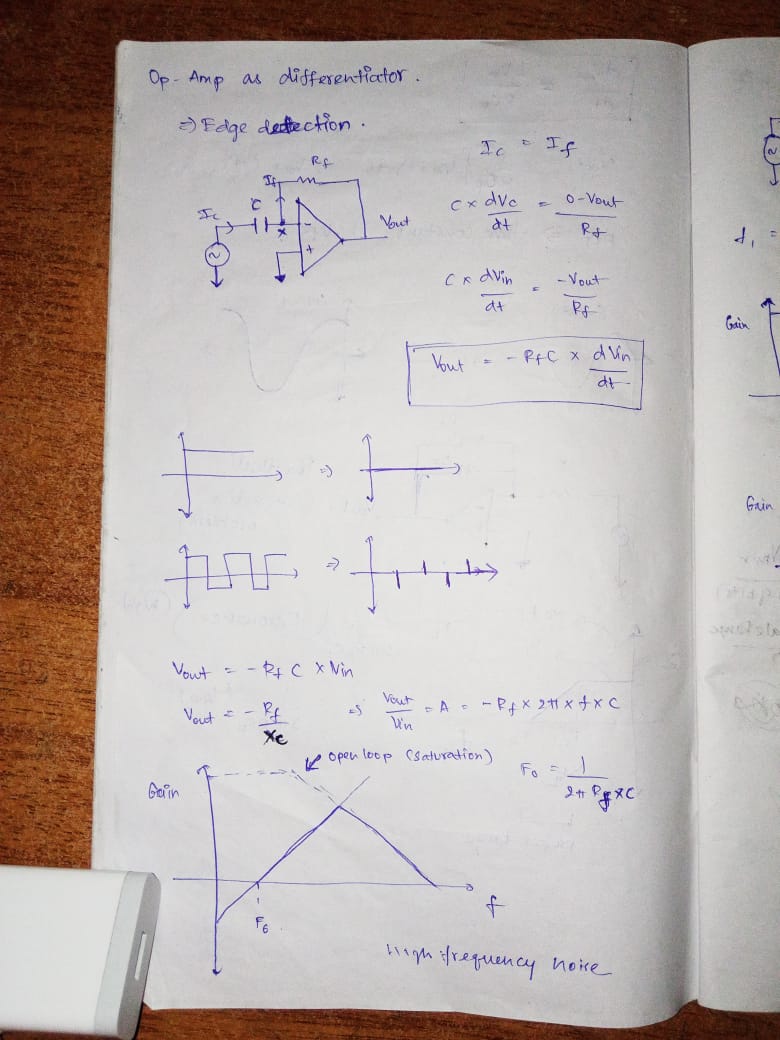 Op-Amp as differentiator.
=) Edge detection.
Ic = If
Rf
If
C
Ic
x
-
+
~
Vout
C x dVc/dt = 0-Vout/Rf
C x dVin/dt = -Vout/Rf
Vout = - RfC x dVin/dt
=)
=)
Vout = - Rf C x Vin
Vout = - Rf/Xc =) Vout/Vin = A = - Rf x 2π x f x C
open loop (Saturation)
Fo = 1/2π Rf x C
Gain
f
High frequency noise
Gain
Gain